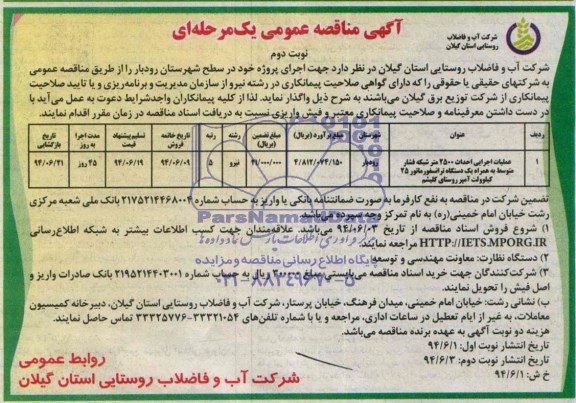 آگهی مناقصه عمومی یک‌مرحله‌ای
نوبت دوم
شرکت آب و فاضلاب
روستایی استان گیلان
شرکت آب و فاضلاب روستایی استان گیلان در نظر دارد جهت اجرای پروژه خود در سطح شهرستان رودبار را از طریق مناقصه عمومی
به شرکتهای حقیقی یا حقوقی را که دارای گواهی صلاحیت پیمانکاری در رشته نیرو از سازمان مدیریت و برنامه‌ریزی و یا تایید صلاحیت
پیمانکاری از شرکت توزیع برق گیلان می‌باشند به شرح ذیل واگذار نماید. لذا از کلیه پیمانکاران واجدشرایط دعوت به عمل می‌آید با
در دست داشتن معرفینامه و صلاحیت پیمانکاری معتبر و فیش واریزی نسبت به دریافت اسناد مناقصه در زمان مقرر اقدام نمایند.
ردیف عنوان شهرستان مبلغ برآورده (ریال) مبلغ تضمین (ریال) رشته رتبه تاریخ خاتمه فروش تسلیم پیشنهاد قیمت مدت اجرا به روز تاریخ بازگشایی
۱ عملیات اجرایی احداث ۲۵۰۰ متر شبکه فشار متوسط به همراه یک دستگاه ترانسفورماتور ۲۵ کیلوولت آمپر روستای کلیشم رودبار ۴/۸۱۲/۰۷۴/۱۵۰ نیرو ۵ ۹۴/۰۶/۰۹ ۹۴/۰۶/۱۹ ۴۵ روز ۹۴/۰۶/۲۱
تضمین شرکت در مناقصه به نفع کارفرما به صورت ضمانتنامه بانکی یا واریز به حساب شماره ۲۱۷۵۲۱۴۴۶۸۰۰۴ بانک ملی شعبه مرکزی
رشت خیابان امام خمینی(ره) به نام تمرکز وجوه سپرده می‌باشد.
۱) شروع فروش اسناد مناقصه از تاریخ ۹۴/۰۶/۰۳ می‌باشد. علاقه‌مندان جهت کسب اطلاعات بیشتر به شبکه اطلاع‌رسانی
HTTP://IETS.MPORG.IR مراجعه نمایند.
۲) دستگاه نظارت: معاونت مهندسی و توسعه
۳) شرکت‌کنندگان جهت خرید اسناد مناقصه می‌بایستی مبلغ ۳۰۰۰۰۰ ریال به حساب شماره ۲۱۹۵۲۱۴۴۰۳۰۰۱ بانک صادرات واریز و
اصل فیش را تحویل نمایند.
ب) نشانی رشت: خیابان امام خمینی، میدان فرهنگ، خیابان پرستار، شرکت آب و فاضلاب روستایی استان گیلان، دبیرخانه کمیسیون
معاملات، به غیر از ایام تعطیل در ساعات اداری، مراجعه و یا با شماره تلفن‌های ۳۳۳۲۱۰۵۴-۳۳۳۲۵۷۷۶ تماس حاصل نمایند.
هزینه دو نوبت آگهی به عهده برنده مناقصه می‌باشد.
تاریخ انتشار نوبت اول: ۹۴/۶/۱
تاریخ انتشار نوبت دوم: ۹۴/۶/۳
خ ش: ۹۴/۶/۱
روابط عمومی
شرکت آب و فاضلاب روستایی استان گیلان
پایگاه اطلاع رسانی مناقصه و مزایده
۰۲۱-۸۸۳۴۹۶۷۰-۵